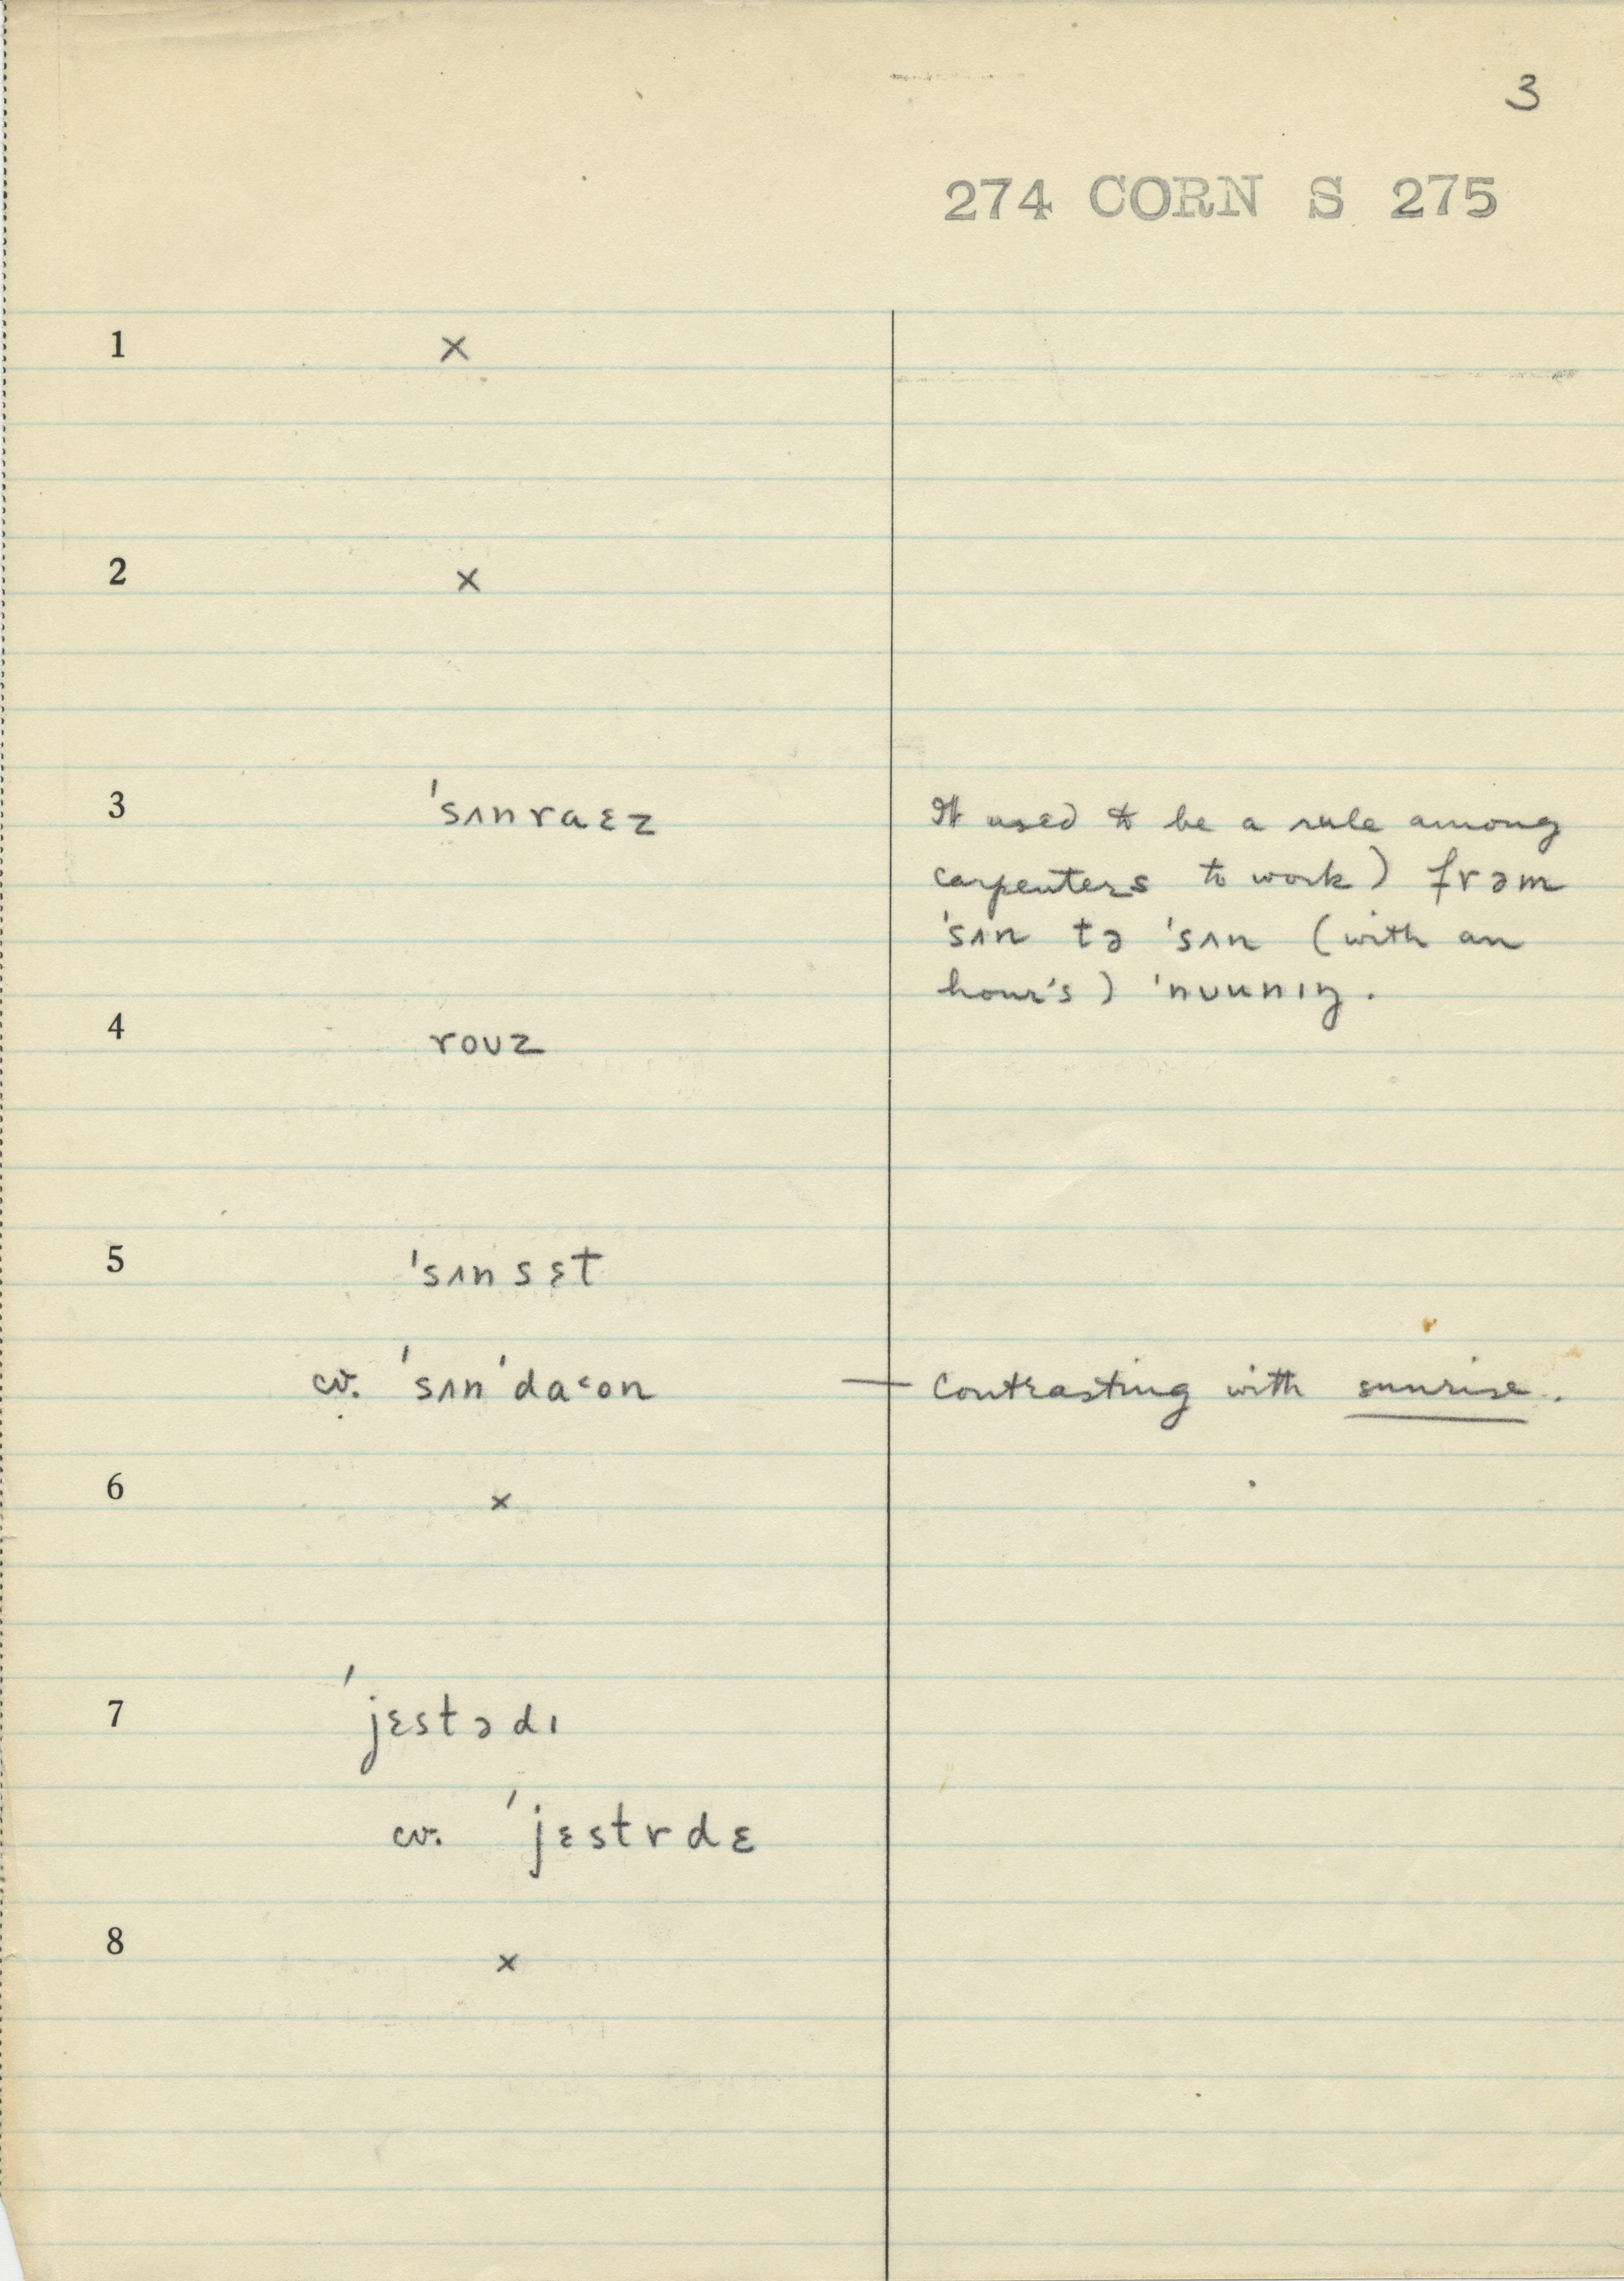 3
274 CORN S 275
1 ×
2 ×
3 'sʌnraɛz
It used to be a rule among
carpenters to work) frəm
'sʌn tə 'sʌn (with an
hour's) 'nʊunɪŋ.
4 roʊz
5 'sʌnsɛt
cv. 'sʌn'daᵋon — Contrasting with sunrise.
6 ×
7 'jɛstədɪ
cv. 'jɛstrdɛ
8 ×